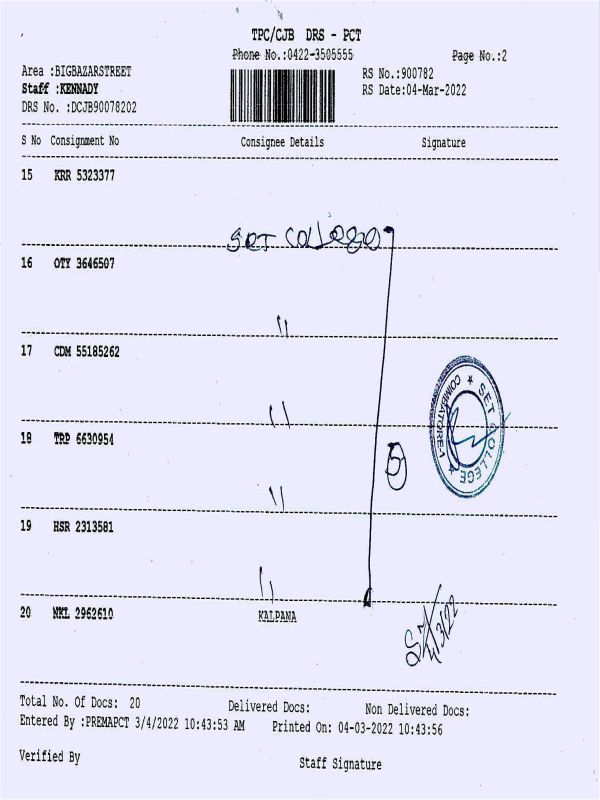 TPC/CJB DRS - PCT
Phone No.:0422-3505555
Page No.:2
Area :BIGBAZARSTREET
RS No.:900782
Staff :KENNADY
RS Date:04-Mar-2022
DRS No. :DCJB90078202
S No Consignment No Consignee Details Signature
15 KRR 5323377
SET COllege
16 OTY 3646507
"
17 CDM 55185262
"
SET COLLEGE ★ COIMBATORE-1 ★
18 TRP 6630954
5
"
19 HSR 2313581
"
20 NKL 2962610 KALPANA
4/3/22
Total No. Of Docs: 20 Delivered Docs: Non Delivered Docs:
Entered By :PREMAPCT 3/4/2022 10:43:53 AM Printed On: 04-03-2022 10:43:56
Verified By Staff Signature